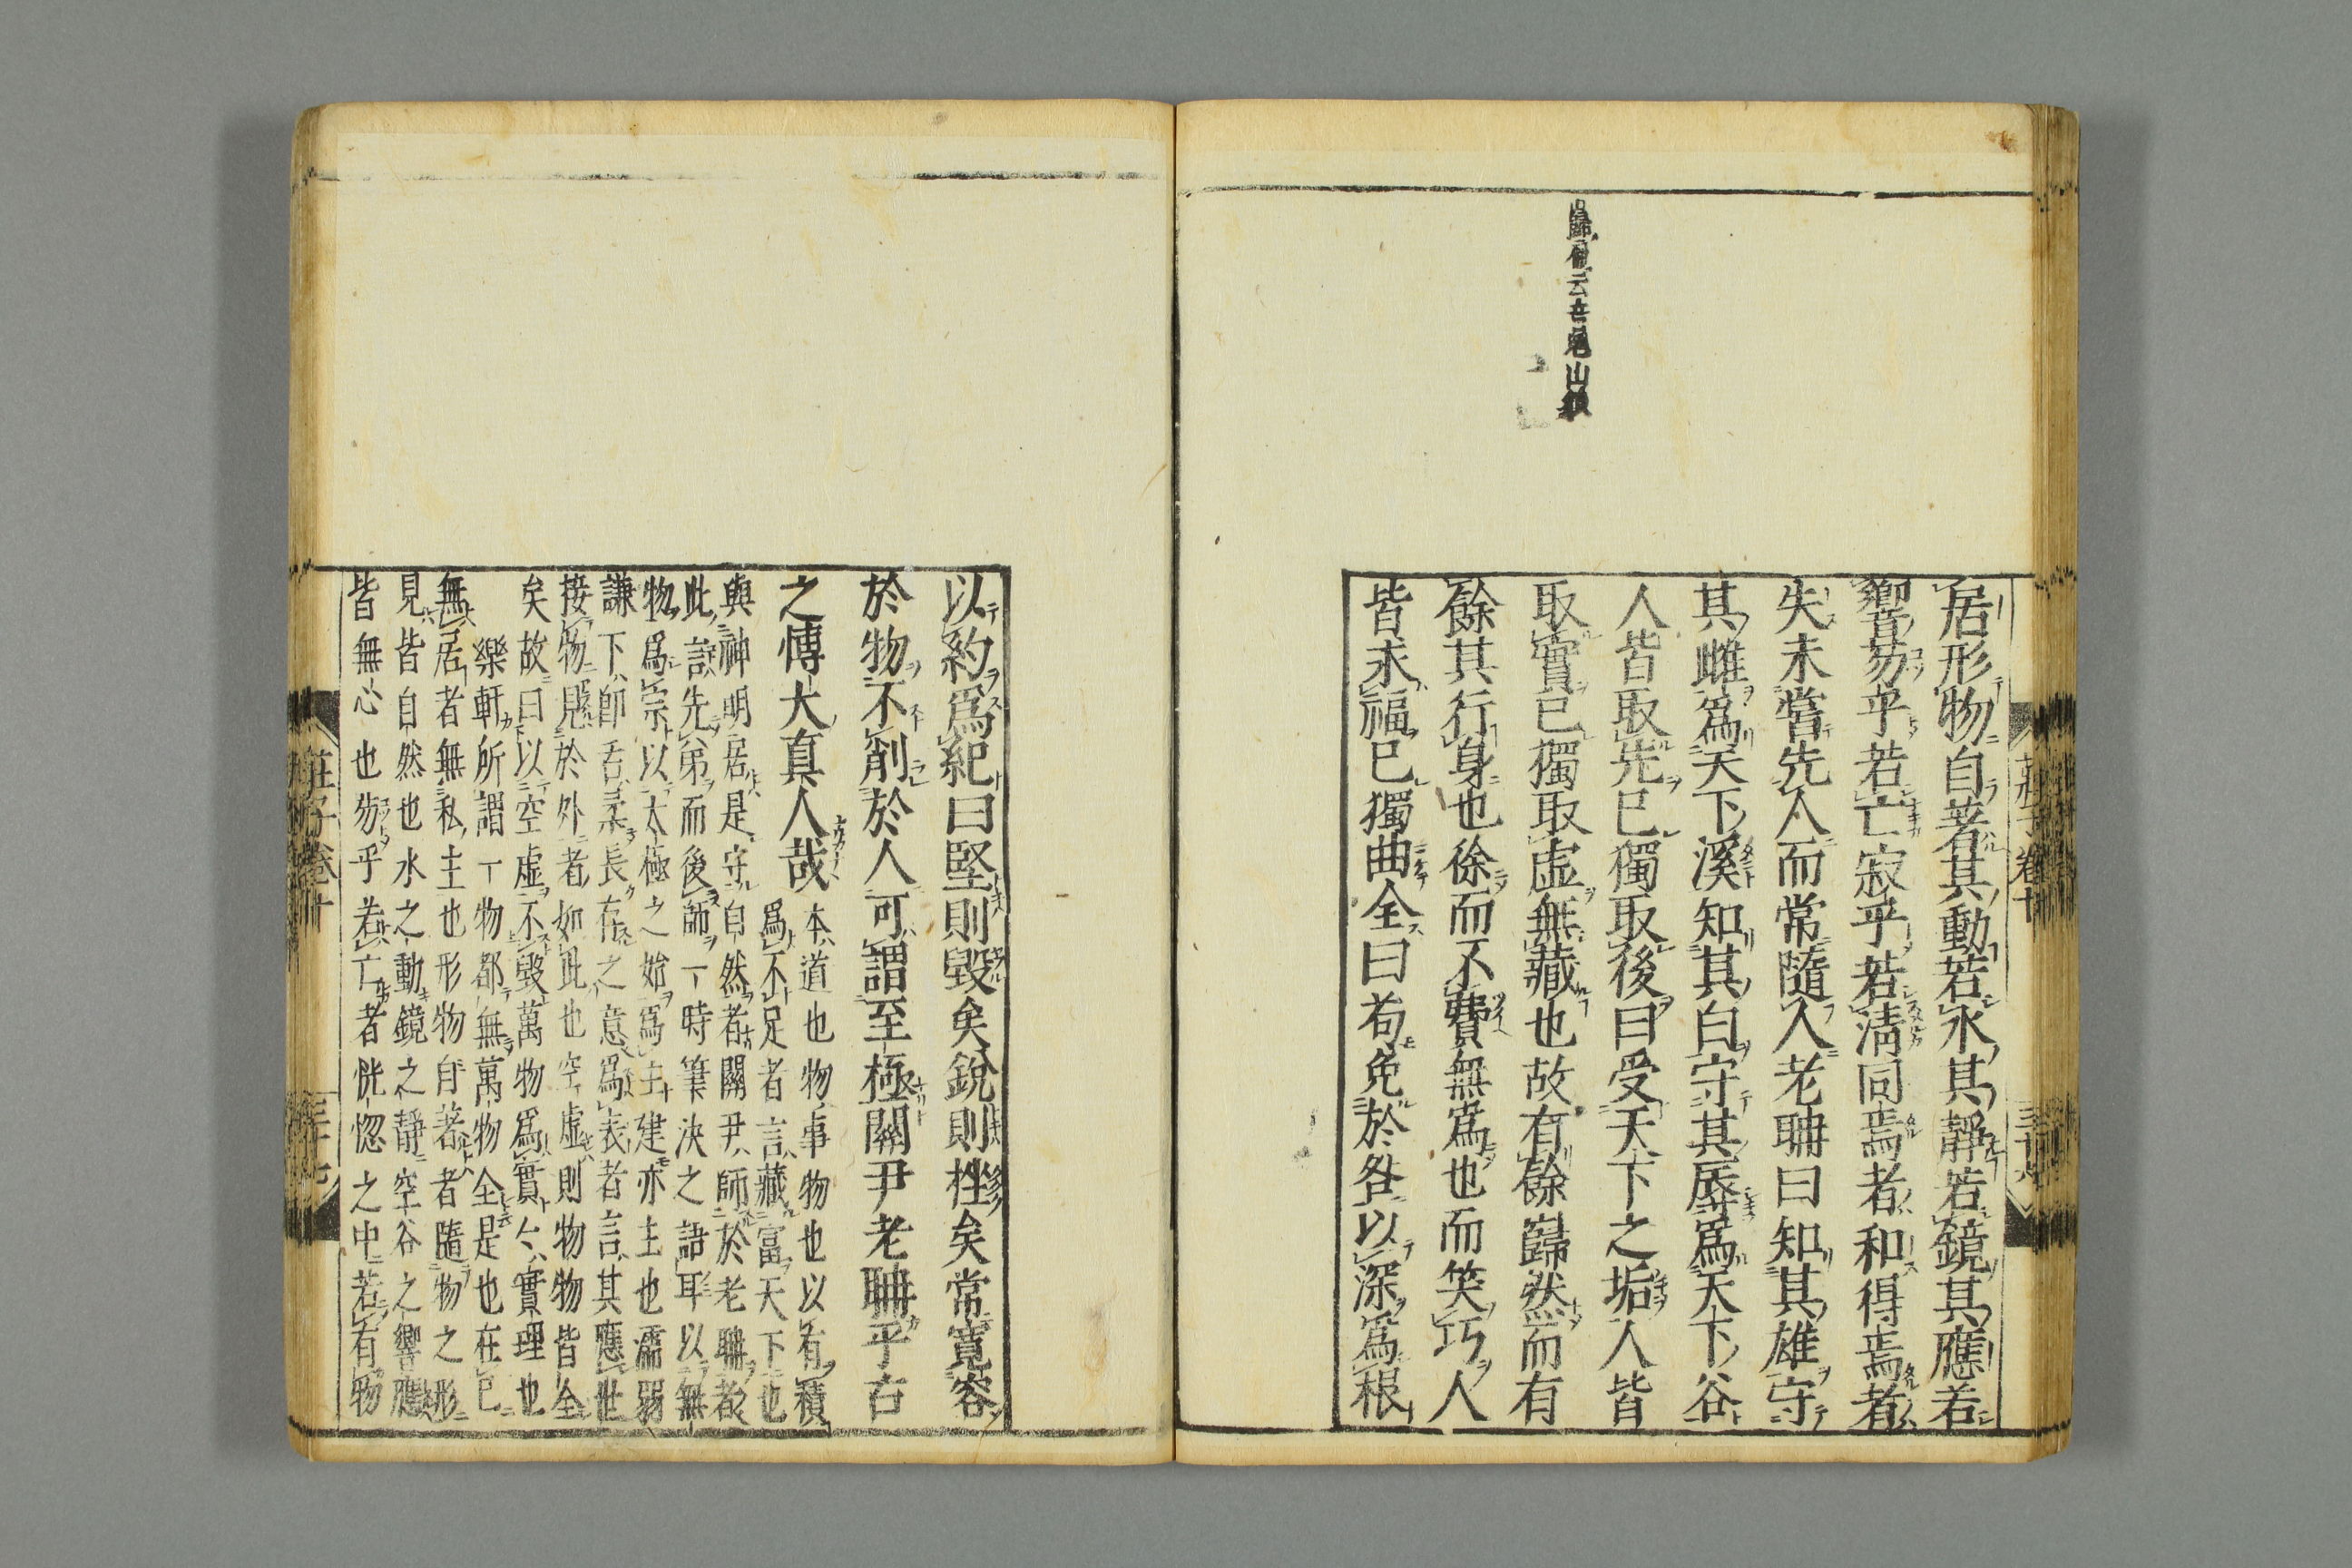 居形物自著其動若水其靜若鏡其應若
響芴乎若亡寂乎若淸同焉者和得焉者
失未嘗先人而常隨人老聃曰知其雄守
其雌爲天下溪知其白守其辱爲天下谷
人皆取先已獨取後曰受天下之垢人皆
取實已獨取虛無藏也故有餘巋然而有
餘其行身也徐而不費無爲也而笑巧人
皆求福已獨曲全曰苟免於咎以深爲根
以約爲紀曰堅則毀矣銳則挫矣常寬容
於物不削於人可謂至極關尹老聃乎古
之慱大真人哉
本道也物事物也以有積
爲不足者言藏富天下也
與神明居是守自然者關尹師於老聃者
此說先弟而後師一時筆決之語耳以無
物爲宗以太極之始爲主建亦主也濡弱
謙下即舌柔長存之意爲表者言其應世
接物見於外者如此也空虛則物物皆全
矣故曰以空虛不毀萬物爲實々實理也
樂軒所謂一物都無萬物全是也在已
無居者無私主也形物自著者隨物之形
見皆自然也水之動鏡之靜空谷之響應
皆無心也芴乎若亡者恍惚之中若有物
莊子卷十